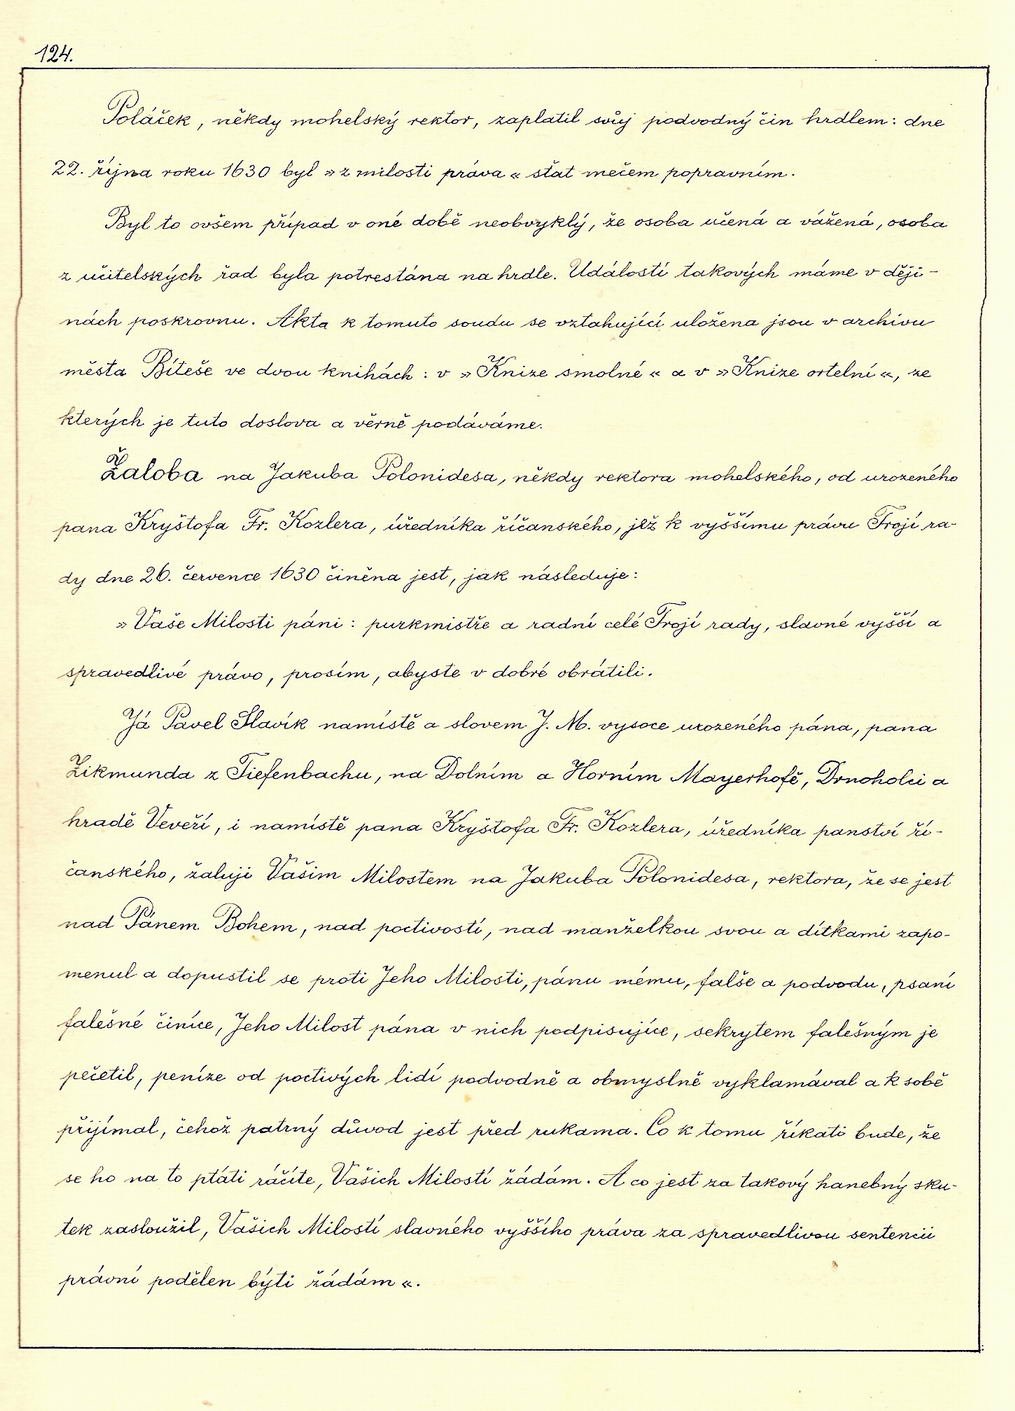 124.
Poláček, někdy mohelský rektor, zaplatil svůj podvodný čin hrdlem: dne
22. října roku 1630 byl » z milosti práva « stat mečem popravním.
Byl to ovšem případ v oné době neobvyklý, že osoba učená a vážená, osoba
z učitelských řad byla potrestána na hrdle. Událostí takových máme v ději-
nách poskrovnu. Akta k tomuto soudu se vztahující uložena jsou v archivu
města Bíteše ve dvou knihách : v » Knize smolné « a v » Knize ortelní «, ze
kterých je tuto doslova a věrně podáváme.
Žaloba na Jakuba Polonidesa, někdy rektora mohelského, od urozeného
pana Kryštofa Fr. Kozlera, úředníka říčanského, jež k vyššímu právu Trojí ra-
dy dne 26. července 1630 činěna jest, jak následuje:
» Vaše Milosti páni : purkmistře a radní celé Trojí rady, slavné vyšší a
spravedlivé právo, prosím, abyste v dobré obrátili.
Já Pavel Slavík namístě a slovem J. M. vysoce urozeného pána, pana
Zikmunda z Tiefenbachu, na Dolním a Horním Mayerhofě, Drnoholci a
hradě Veveří, i namístě pana Kryštofa Fr. Kozlera, úředníka panství ří-
čanského, žaluji Vašim Milostem na Jakuba Polonidesa, rektora, že se jest
nad Pánem Bohem, nad poctivostí, nad manželkou svou a dítkami zapo-
menul a dopustil se proti Jeho Milosti, pánu mému, falše a podvodu, psaní
falešné činíce, Jeho Milost pána v nich podpisujíce, sekrytem falešným je
pečetil, peníze od poctivých lidí podvodně a obmyslně vyklamával a k sobě
přijímal, čehož patrný důvod jest před rukama. Co k tomu říkati bude, že
se ho na to ptáti ráčíte, Vašich Milostí žádám. A co jest za takový hanebný sku-
tek zasloužil, Vašich Milostí slavného vyššího práva za spravedlivou sentencii
právní podělen býti žádám «.